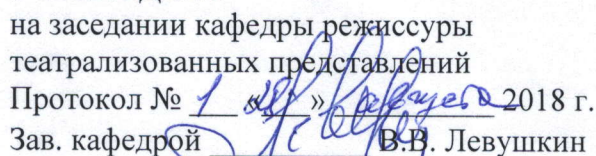 на заседании кафедры режиссуры
театрализованных представлений
Протокол № 1 «   » августа 2018 г.
Зав. кафедрой В.В. Левушкин